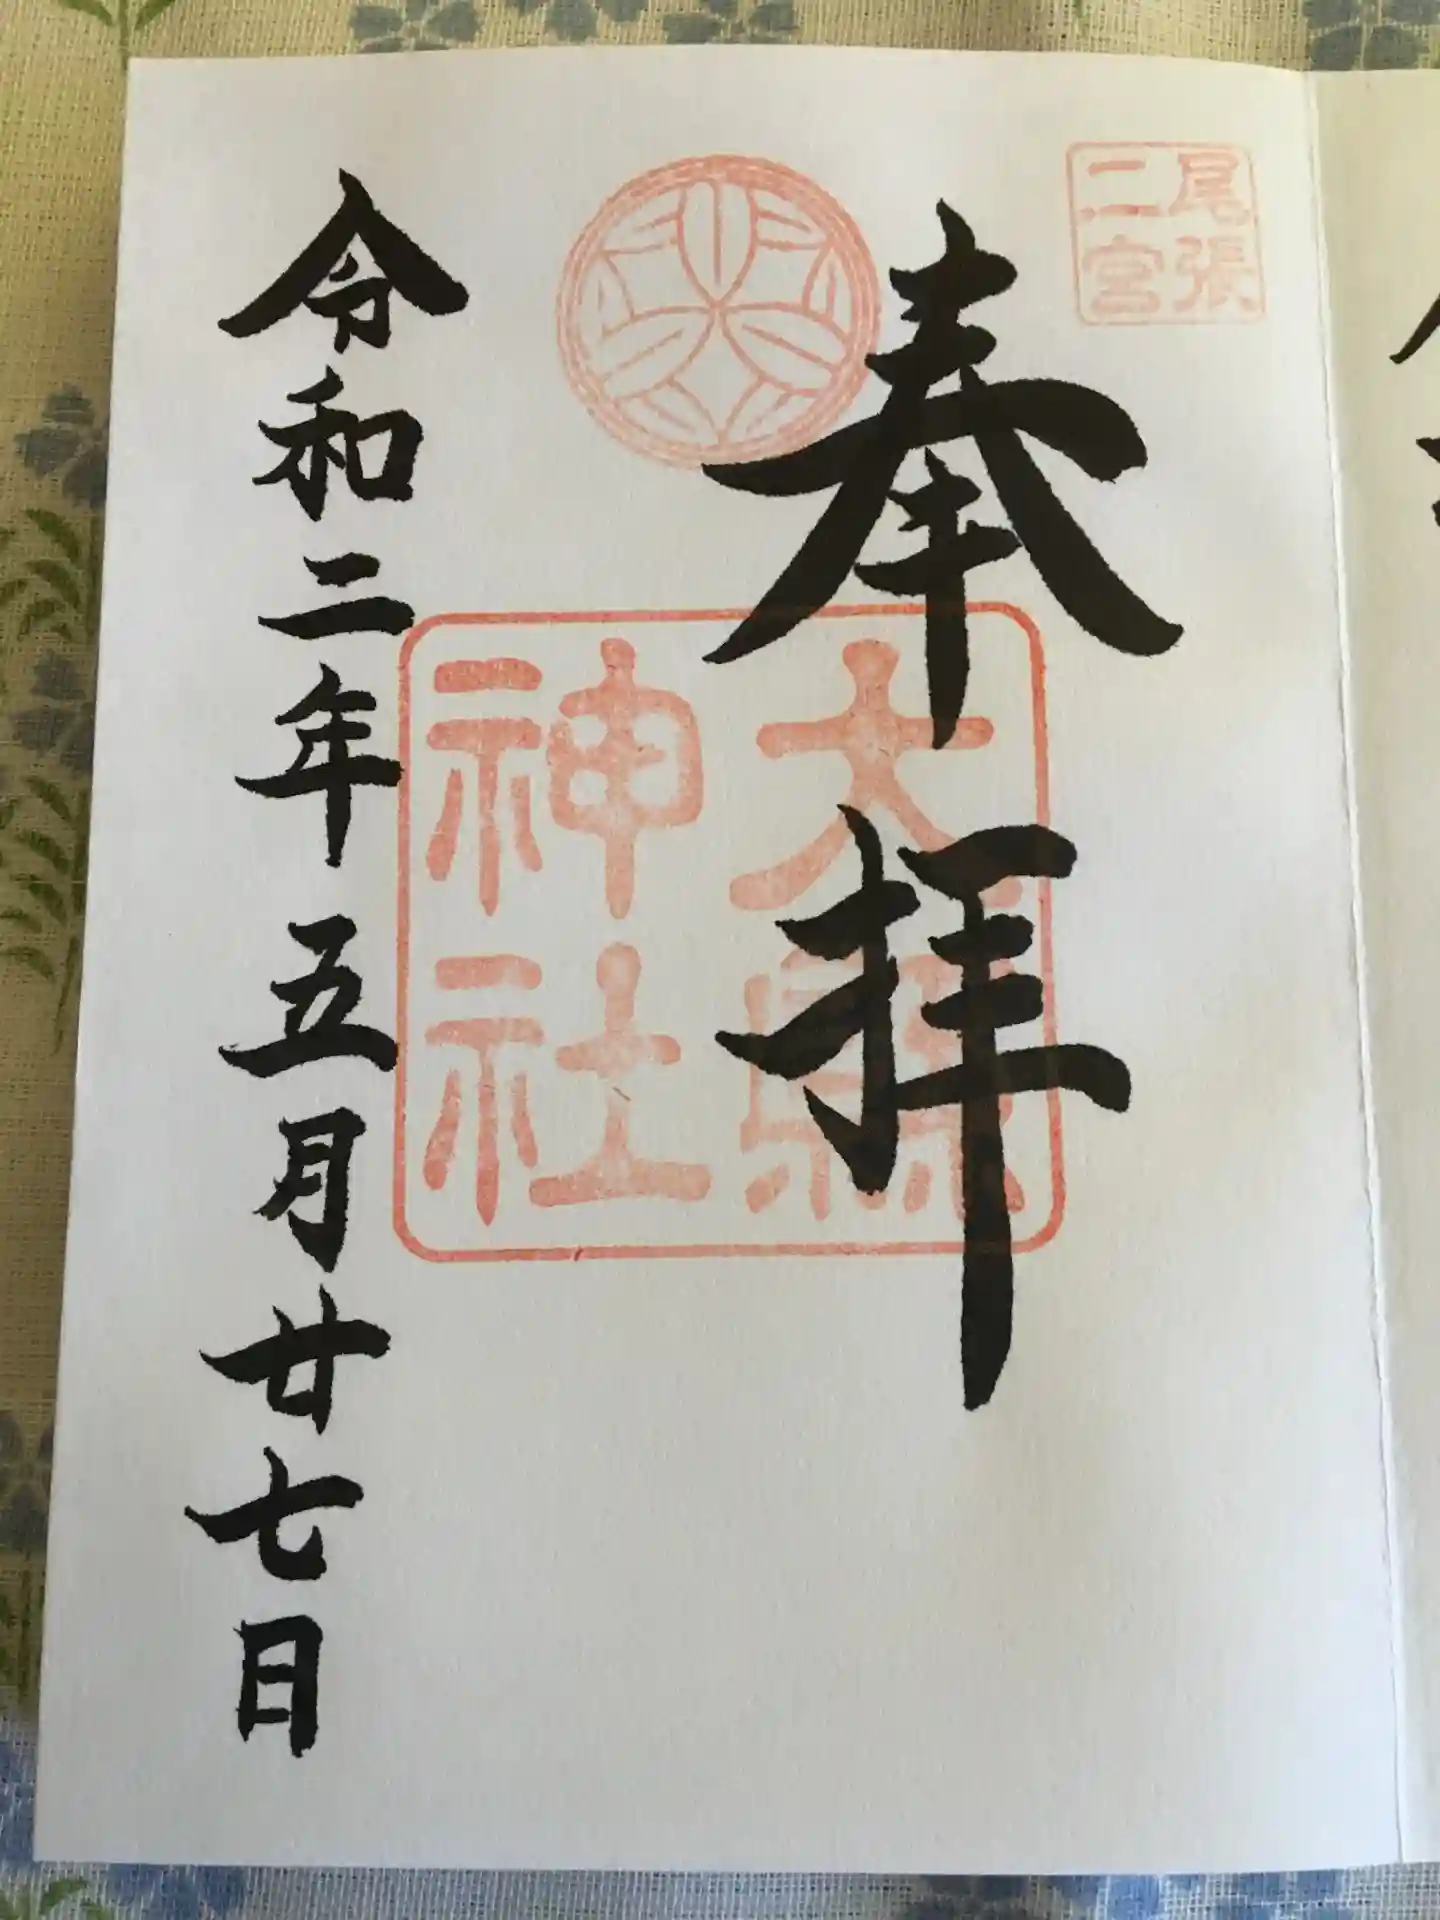 尾張
二宮
奉拝
大縣
神社
令和二年五月廿七日